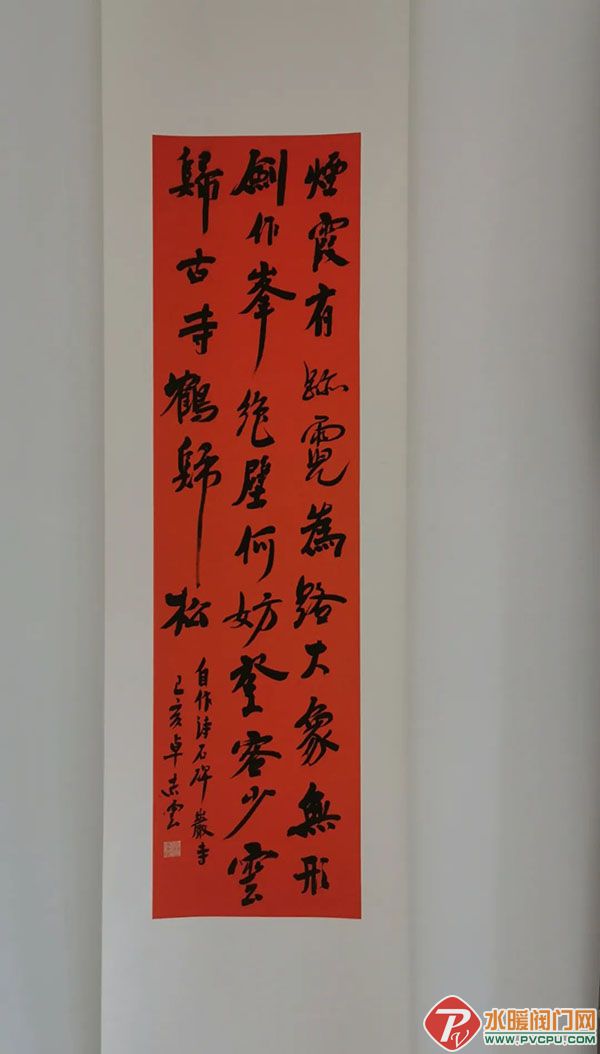 煙霞有跡霓為路大象無形
劍作峯絕壁何妨登客少雲
歸古寺鶴歸松
自作詩石碑巖寺
己亥卓雲
PV
水暖阀门网
WWW.PVCPU.COM